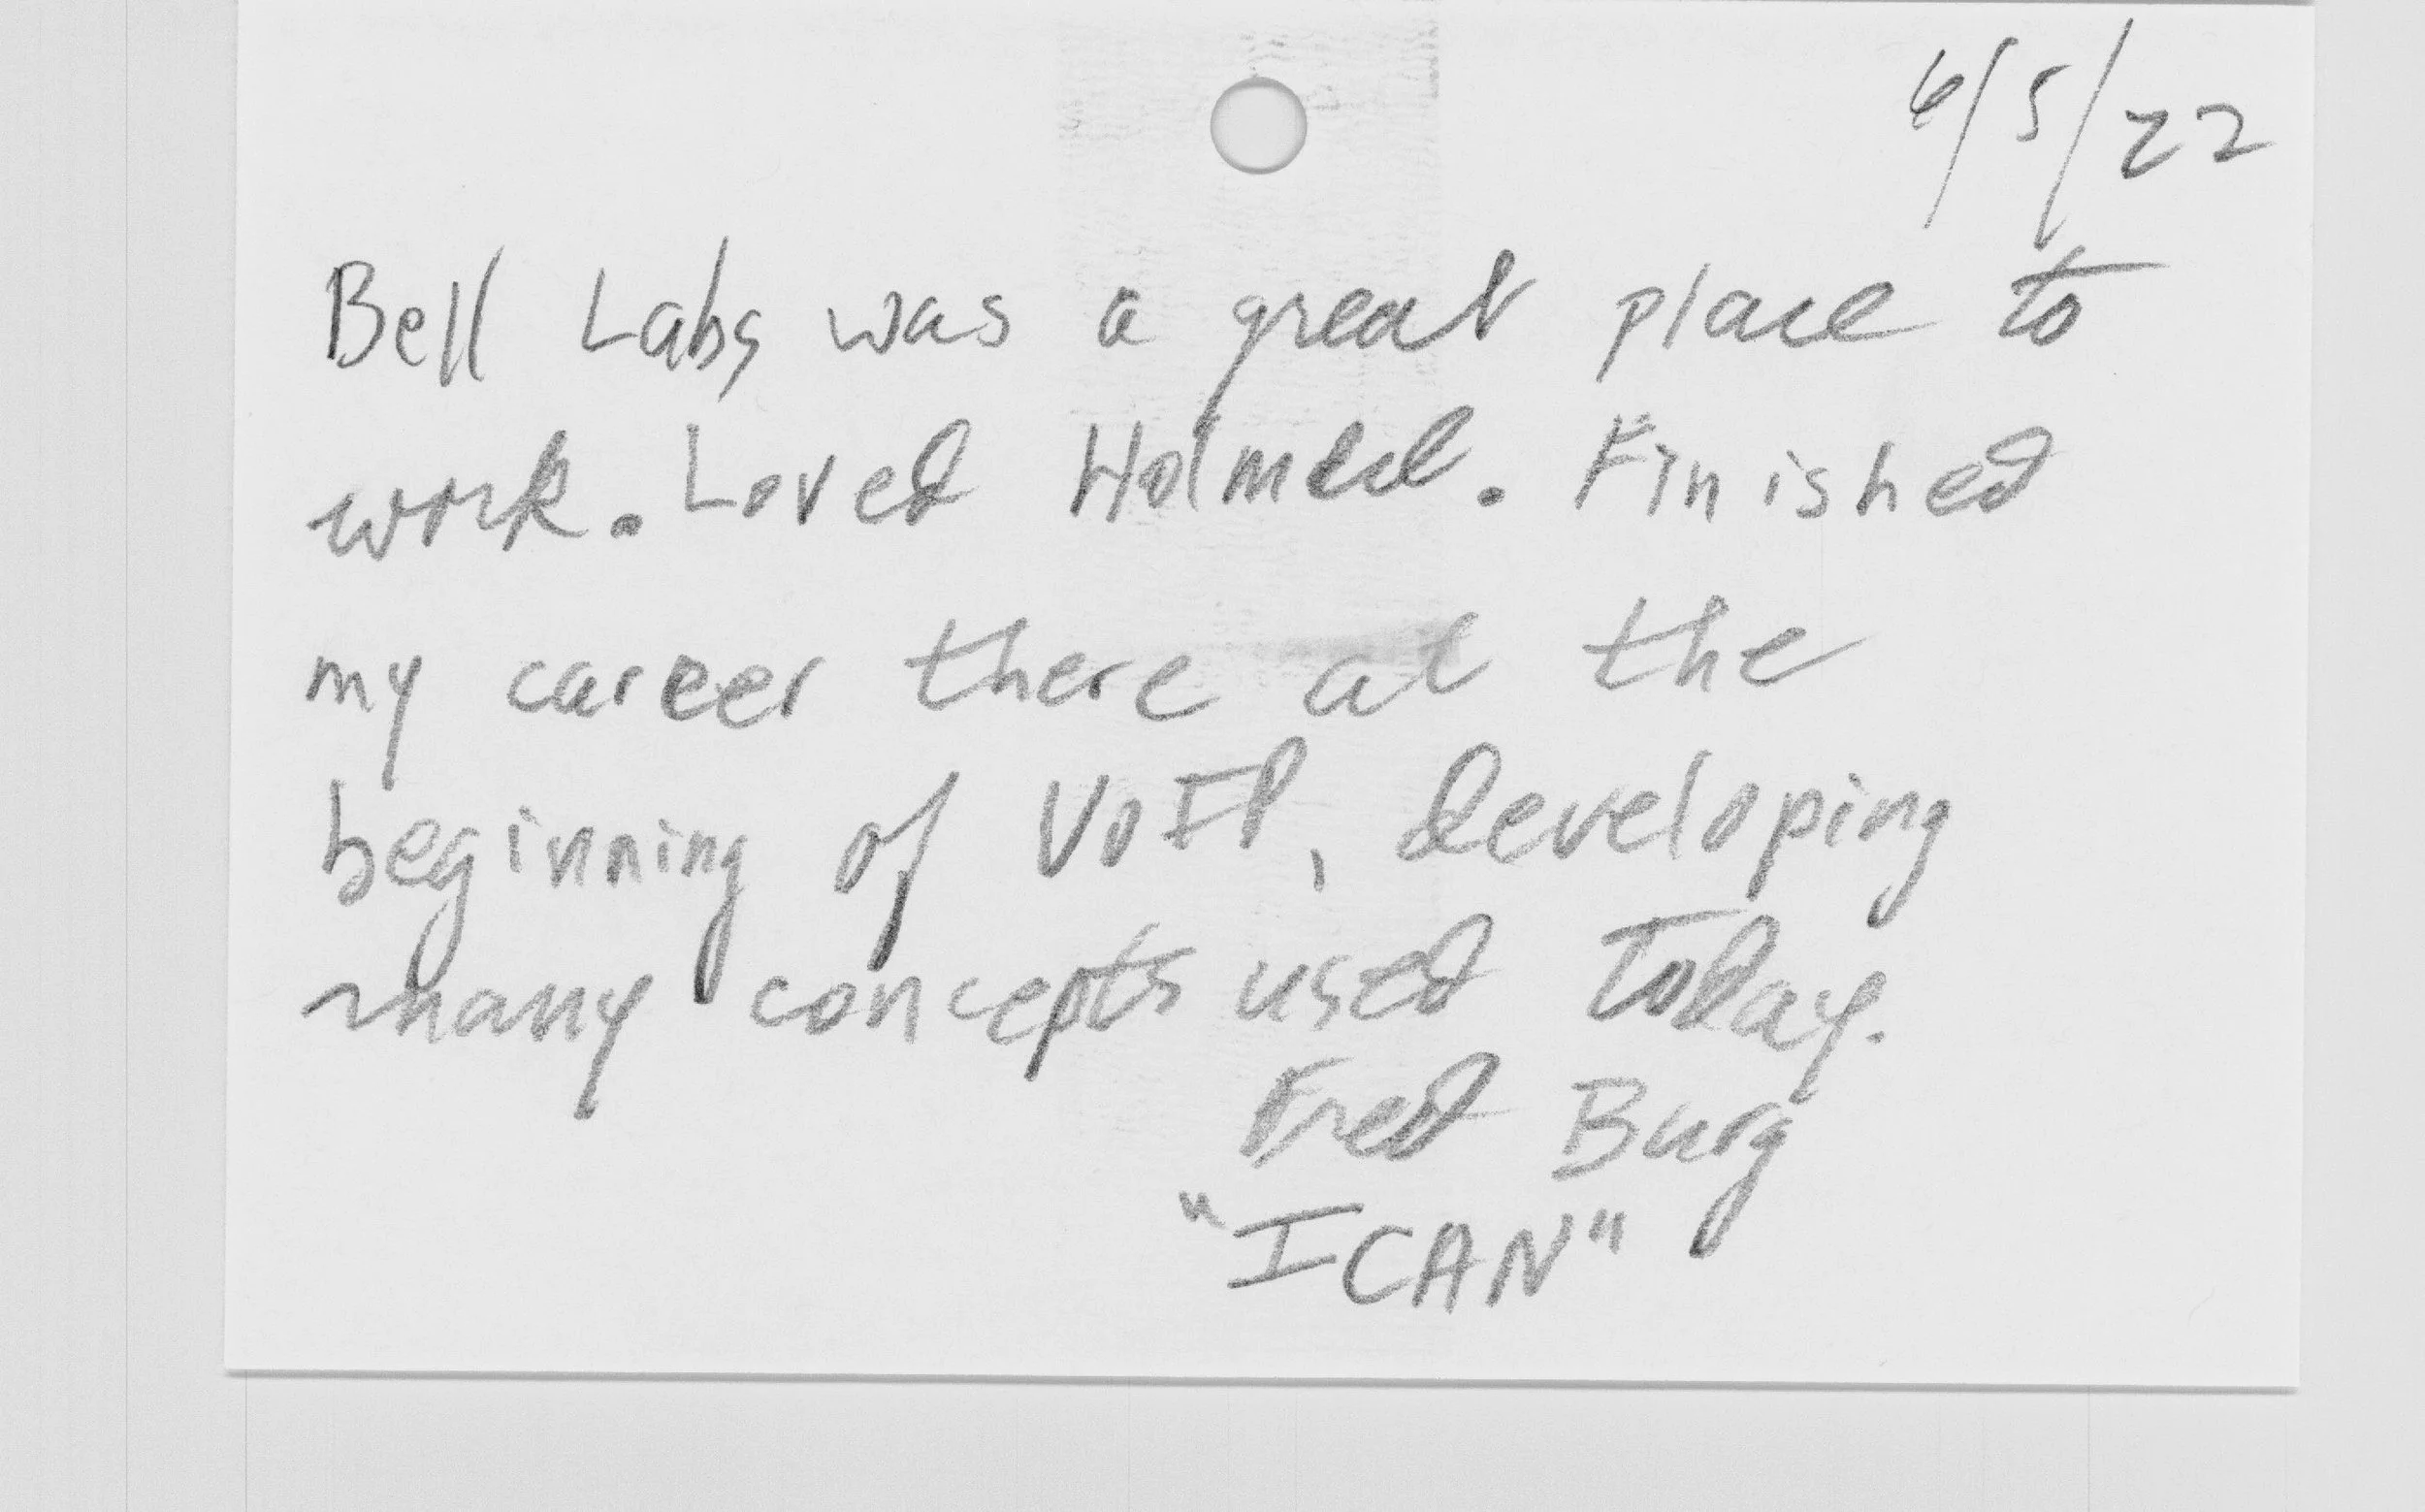 6/5/22
Bell Labs was a great place to
work. Loved Holmdel. Finished
my career there at the
beginning of VoIP, developing
many concepts used today.
Fred Burg
"ICAN"